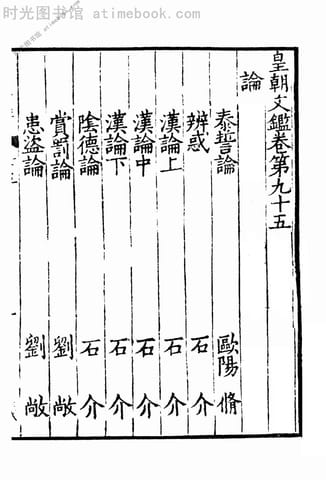 时光图书馆 - atimebook.com
皇朝文鑑卷第九十五
論
泰誓論 歐陽脩
辨惑 石介
漢論上 石介
漢論中 石介
漢論下 石介
陰德論 石介
賞罰論 劉敞
患盜論 劉敞
时光图书馆 - atimebook.com